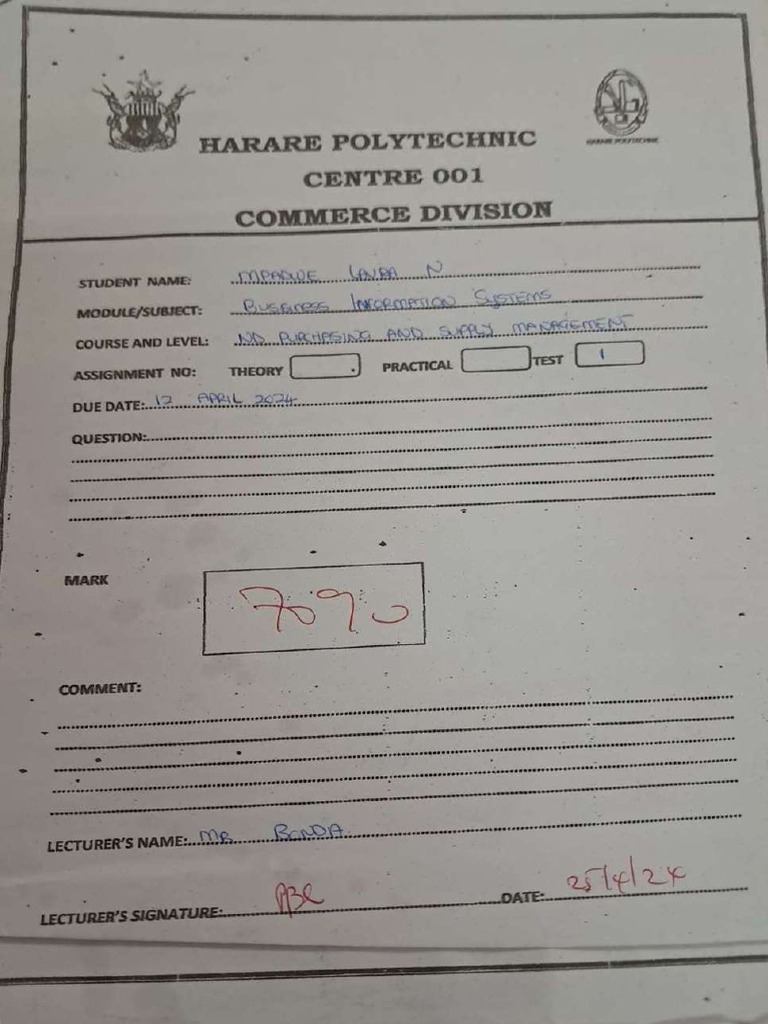 HARARE POLYTECHNIC
HARARE POLYTECHNIC
CENTRE 001
COMMERCE DIVISION
STUDENT NAME: N
MODULE/SUBJECT: Business Information Systems
COURSE AND LEVEL: ND PURCHASING AND SUPPLY MANAGEMENT
ASSIGNMENT NO: THEORY PRACTICAL TEST 1
DUE DATE: 12 APRIL 2024
QUESTION:
MARK
70%
COMMENT:
LECTURER'S NAME: MR BANDA
LECTURER'S SIGNATURE: DATE: 25/4/24